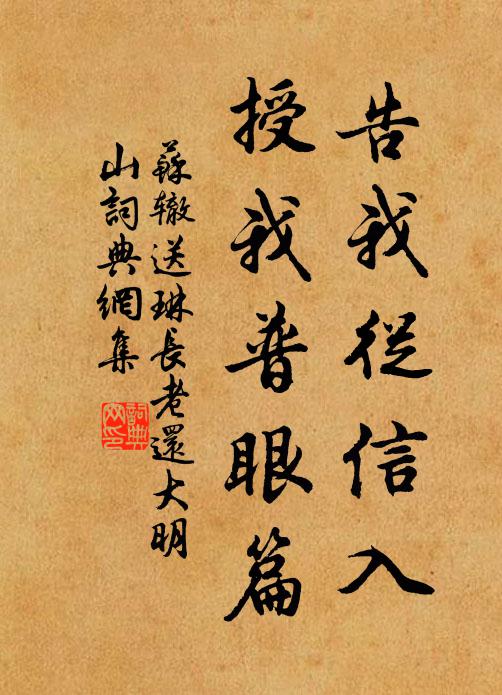 告我從信入
授我普眼篇
蘇辙送琳長老還大明
山詞典網集
詞典
网印